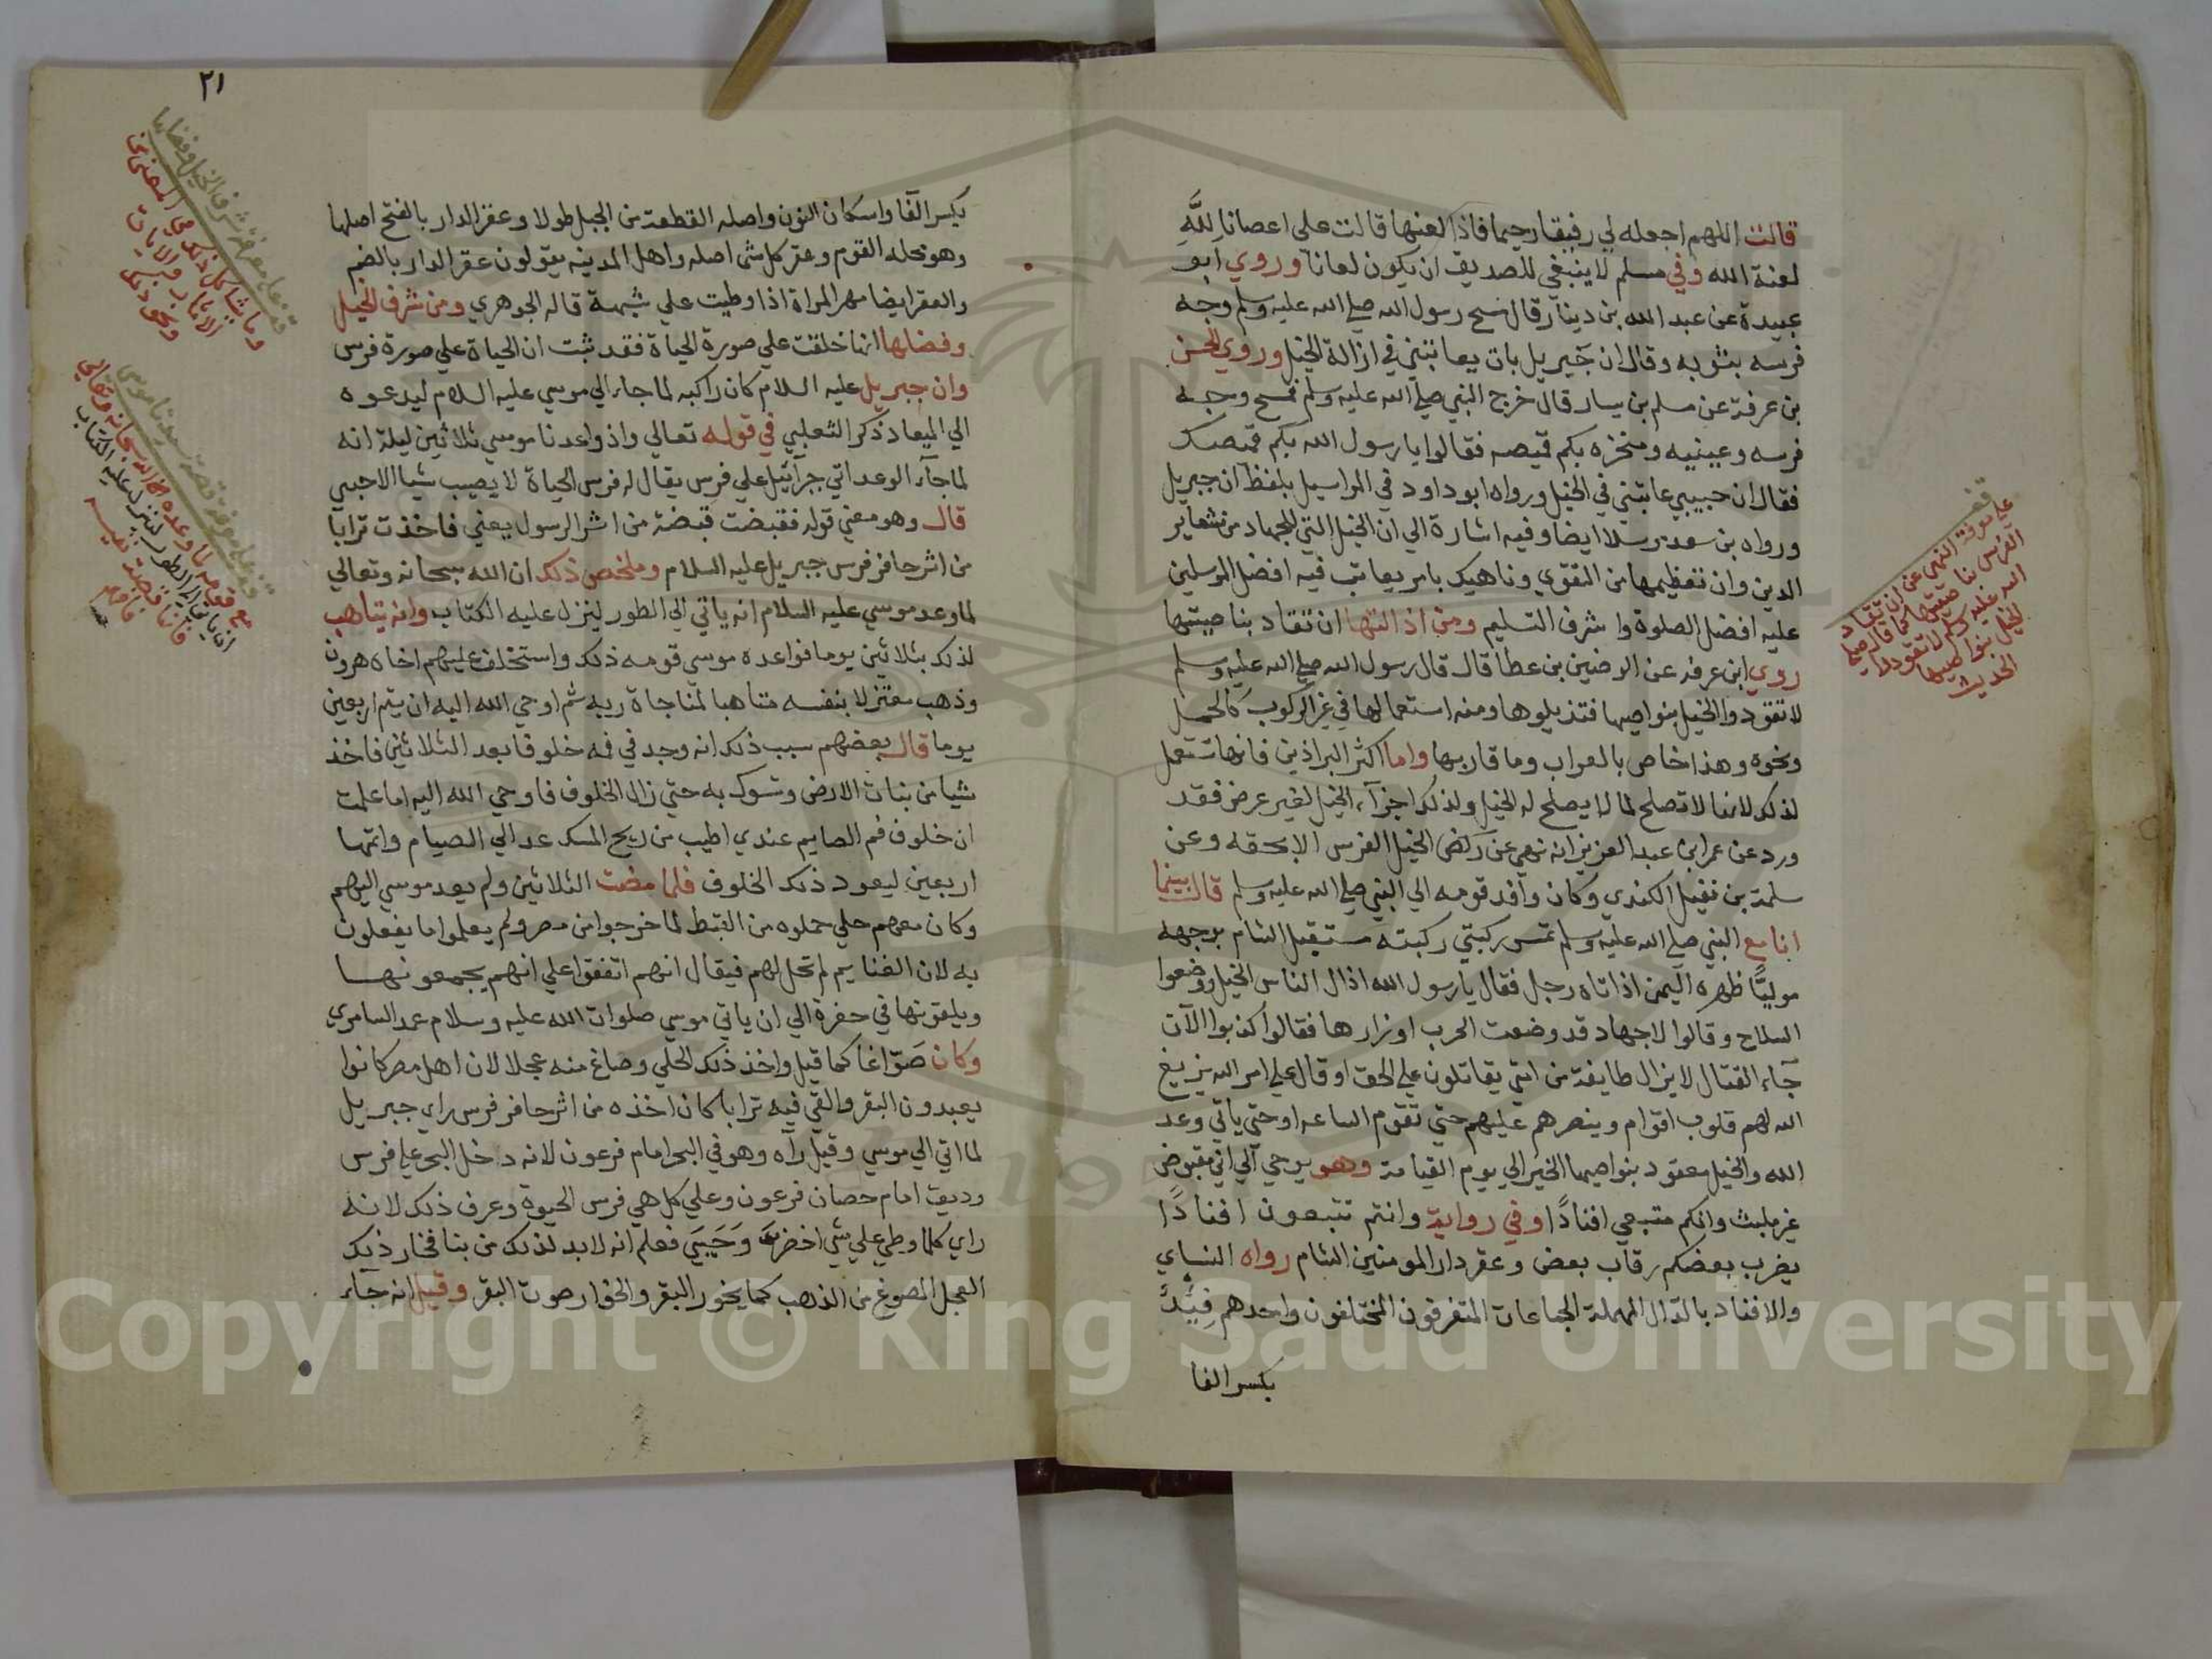 قالت اللهم اجعله لي رفيقا رحيما فاذا لعنها قالت علي اعصانا لله
لعنة الله وفي مسلم لا ينبغي للصديق ان يكون لعانا وروي ابو
عبيدة عن عبد الله بن دينار قال مسح رسول الله صلي الله عليه وسلم وجه
فرسه بثوبه وقال ان جبريل بات يعاتبني في اذالة الخيل وروي الحسن
بن عرفة عن مسلم بن يسار قال خرج النبي صلي الله عليه وسلم فمسح وجه
فرسه وعينيه ومنخره بكم قميصه فقالوا يا رسول الله بكم قميصك
فقال ان حبيبي عاتبني في الخيل ورواه ابو داود في المراسيل بلفظ ان جبريل
ورواه بن سعد مرسلا ايضا وفيه اشارة الي ان الخيل التي للجهاد من شعاير
الدين وان تعظيمها من التقوي وناهيك بامر يعاتب فيه افضل المرسلين
عليه افضل الصلوة واشرف التسليم ومن اذالتها ان تقاد بناصيتها
روي ابن عرفه عن الوضين بن عطا قال قال رسول الله صلي الله عليه وسلم
لا تقودوا الخيل بنواصيها فتذيلوها ومنه استعمالها في غير الركوب كالحمل
ونحوه وهذا خاص بالعراب وما قاربها واما اكثر البراذين فانها تستعمل
لذلك لانها لا تصلح لما لا يصلح له الخيل ولذلك اجراء الخيل لغير عرض فقد
ورد عن عمر ابن عبد العزيز انه نهي عن ركض الخيل الفرس الا بحقه وعن
سلمة بن نفيل الكندي وكان وافد قومه الي النبي صلي الله عليه وسلم قال بينما
انا مع النبي صلي الله عليه وسلم تمس ركبتي ركبته مستقبل الشام بوجهه
موليًا ظهره اليمن اذ اتاه رجل فقال يا رسول الله اذال الناس الخيل ووضعوا
السلاح وقالوا لا جهاد قد وضعت الحرب اوزارها فقالوا كذبوا الآن
جاء القتال لا يزال طايفة من امتي يقاتلون علي الحق او قال علي امر الله يزيغ
الله لهم قلوب اقوام وينصرهم عليهم حتي تقوم الساعه او حتي ياتي وعد
الله والخيل معقود بنواصيها الخير الي يوم القيامة وهو يوحي الي اني مقبوض
غير ملبث وانكم متبعي افنادًا وفي رواية وانتم تتبعون افنادًا
يضرب بعضكم رقاب بعض وعقر دار المومنين الشام رواه النساي
والافناد بالدال المهملة الجماعات المتفرقون المختلفون واحدهم فِنْد
بكسر الفا
قف
علي معرفة النهي عن ان تقاد
الفرس بناصيتها كما قال صلي
الله عليه وسلم لا تقودوا
الخيل بنواصيها
الحديث
٢١
بكسر الفا واسكان النون واصله القطعة من الجبل طولا وعقر الدار بالفتح اصلها
وهو محله القوم وعقر كل شي اصله واهل المدينه يقولون عقر الدار بالضم
والعقر ايضا مهر المراة اذا وطيت علي شبهة قاله الجوهري ومن شرف الخيل
وفضلها انها خلقت علي صورة الحياة فقد ثبت ان الحياة علي صورة فرس
وان جبريل عليه السلام كان راكبه لما جاء الي موسي عليه السلام ليدعوه
الي الميعاد ذكر الثعلبي في قوله تعالي واذ واعدنا موسي ثلاثين ليلة انه
لما جآء الوعد اتي جبرآئيل علي فرس يقال له فرس الحياة لا يصيب شيا الا حيي
قال وهو معني قوله فقبضت قبضة من اثر الرسول يعني فاخذت ترابا
من اثر حافر فرس جبريل عليه السلام وملخص ذلك ان الله سبحانه وتعالي
لما وعد موسي عليه السلام انه ياتي الي الطور لينزل عليه الكتاب وانه يتاهب
لذلك بثلاثين يوما فواعده موسي قومه ذلك واستخلف عليهم اخاه هرون
وذهب معتزلا بنفسه متاهبا لمناجاة ربه ثم اوحي الله اليه ان يتم اربعين
يوما قال بعضهم سبب ذلك انه وجد في فمه خلوفا بعد الثلاثين فاخذ
شيا من بنات الارض وتسوك به حتي زال الخلوف فاوحي الله اليه اما علمت
ان خلوف فم الصايم عندي اطيب من ريح المسك عد الي الصيام واتمها
اربعين ليعود ذلك الخلوف فلما مضت الثلاثين ولم يعد موسي اليهم
وكان معهم حلي حملوه من القبط لما خرجوا من مصر ولم يعلموا ما يفعلون
به لان الغنايم لم تحل لهم فيقال انهم اتفقوا علي انهم يجمعونها
ويلقونها في حفرة الي ان ياتي موسي صلوات الله عليه وسلام عمد السامري
وكان صَوّاغا كما قيل واخذ ذلك الحلي وصاغ منه عجلا لان اهل مصر كانوا
يعبدون البقر والقي فيه ترابا كان اخذه من اثر حافر فرس راي جبريل
لما اتي الي موسي وقيل رآه وهو في البحر امام فرعون لانه دخل البحر علي فرس
وديق امام حصان فرعون وعلي كل هي فرس الحيوة وعرف ذلك لانه
راي كلما وطي علي شي اخضر وَحَيِيَ فعلم انه لابد لذلك من بنا فخار ذلك
العجل المصوغ من الذهب كما يخور البقر والخوار صوت البقر وقيل انه جاء
قف علي معرفة شرف الخيل وفضلها
وما يشاكل ذلك من المعني من
الاثار والايات
ونحو ذلك
قف علي معرفة قصة سيدنا موسي
مع قومه لما وعده الله سبحانه وتعالي
انه ياتي الي الطور لينزل عليه الكتاب
فانها قصة نفيسه